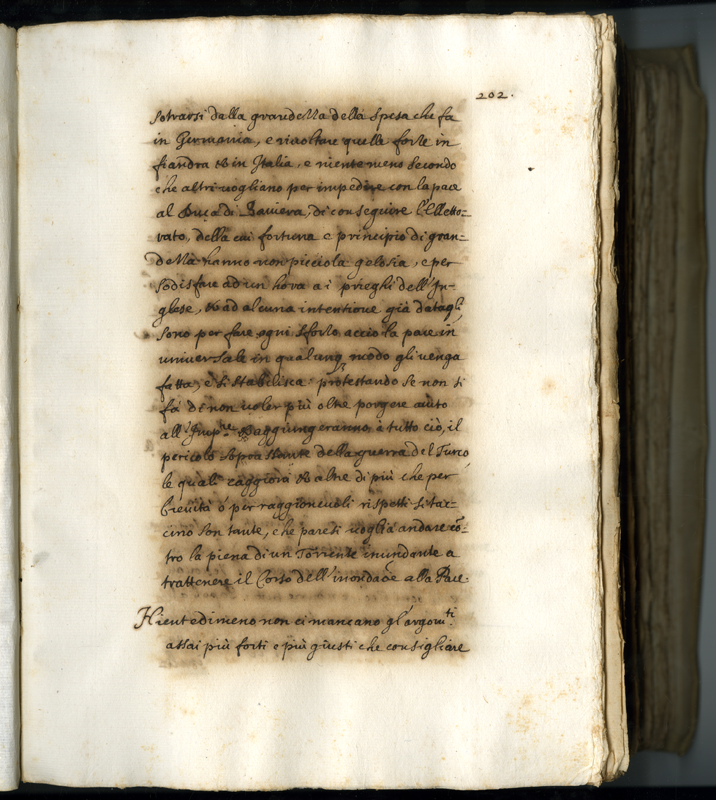 202.
sotrarsi dalla grandezza della spesa che fa
in Germania, e rivoltare quelle forze in
fiandra et in Italia, e nientemeno secondo
che altri uogliano per impedire con la pace
al Duca di Bauiera, di conseguire l'Eletto=
rato, della cui fortuna e principio di gran=
dezza hanno non picciola gelosia, e per
sodisfare ad un hora a i prieghi dell'In=
glese, et ad alcuna intentione già datagli,
sono per fare ogni sforzo acciò la pace in
uniuersale in qualunq modo gli uenga
fatta, e si stabilisca protestando se non si
fà di non uoler più oltre porgere aiuto
all'Imp.re et aggiungeranno à tutto ciò, il
pericolo soprastante della guerra del Turco
le quali raggioni et altre di più che per
breuità ò per raggioneuoli rispetti si tac=
cino son tante, che pare si uoglia andare cõ=
tro la piena di un Torrente inundante a
trattenere il Corso dell'inondaõe alla Pace.
Nientedimeno non ci mancano gl'argom.ti
assai più forti e più giusti che consigliare